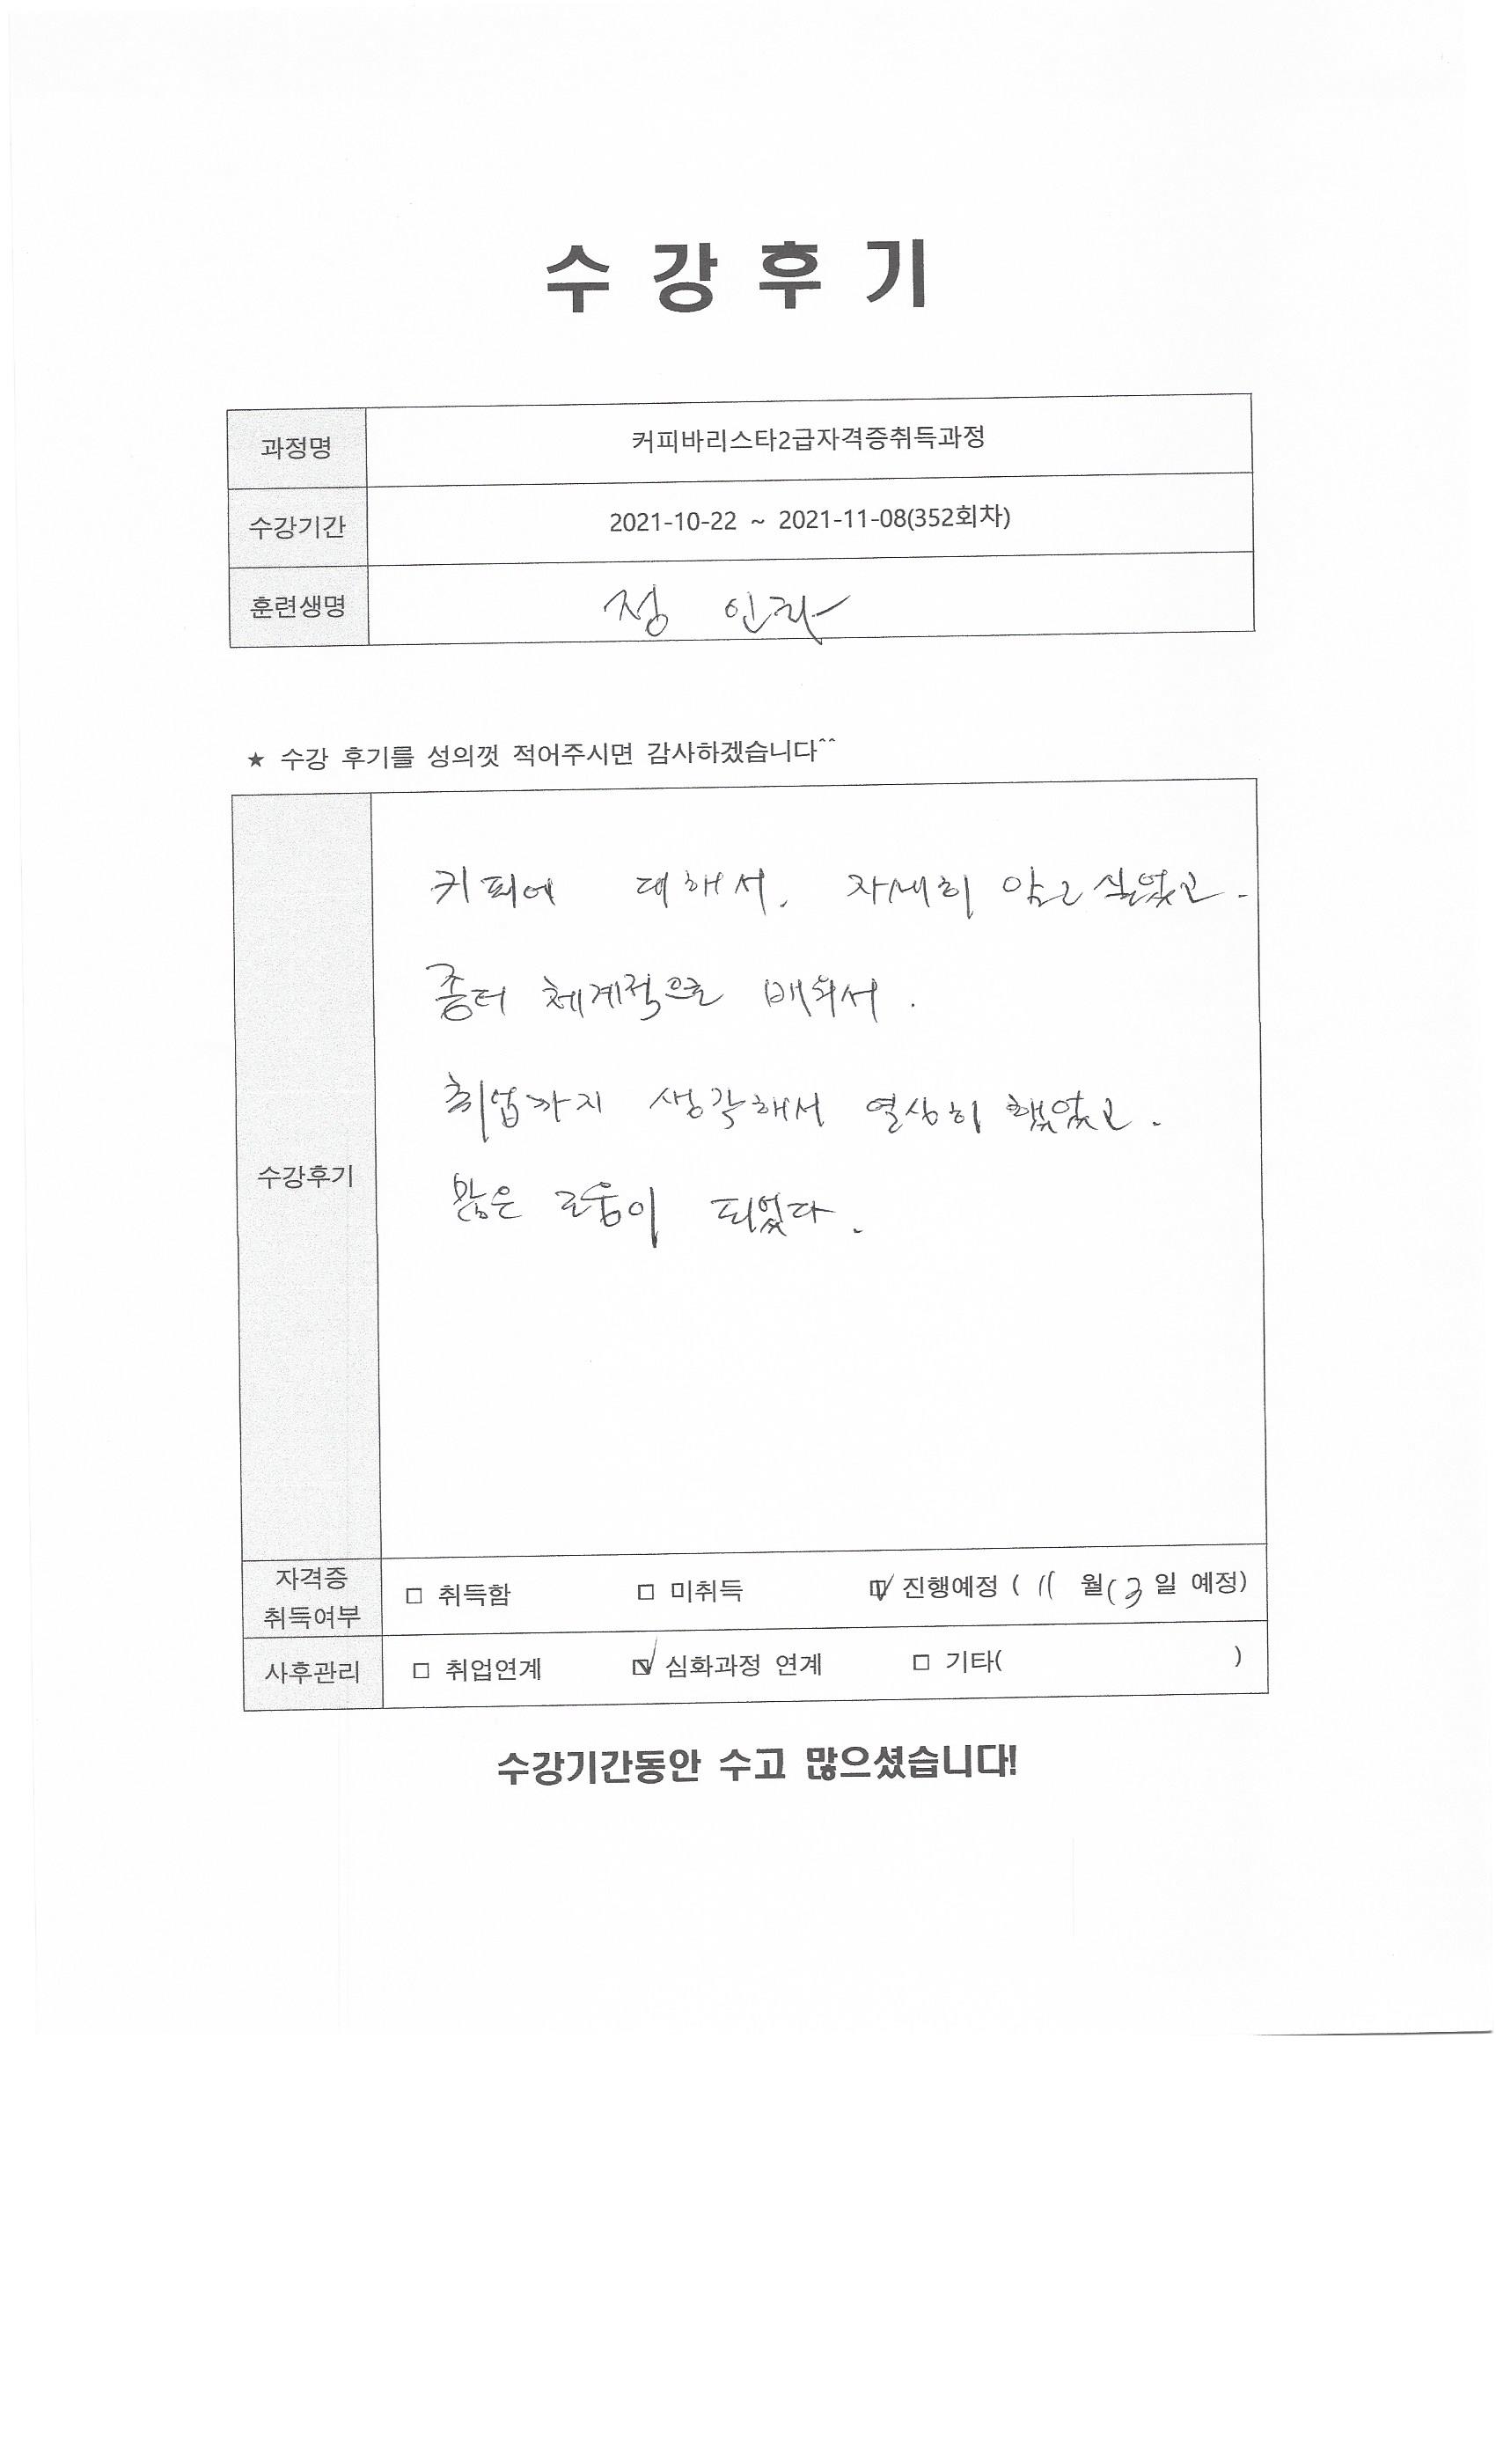 수강후기
과정명 커피바리스타2급자격증취득과정
수강기간 2021-10-22 ~ 2021-11-08(352회차)
훈련생명 정 인
★ 수강 후기를 성의껏 적어주시면 감사하겠습니다^^
커피에 대해서, 자세히 알고 싶었고.
좀더 체계적으로 배워서.
취업까지 생각해서 열심히 했었고.
수강후기
많은 도움이 되었다.
자격증 취득여부 □ 취득함 □ 미취득 ☑ 진행예정 ( 11 월 13 일 예정)
사후관리 □ 취업연계 ☑ 심화과정 연계 □ 기타( )
수강기간동안 수고 많으셨습니다!